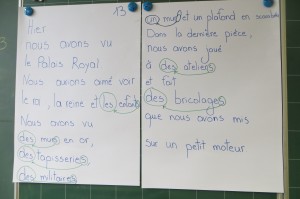 13
Hier
nous avons vu
le Palais Royal
Nous aurions aimé voir
le roi, la reine et les enfants
Nous avons vu
des murs en or,
des tapisseries
des militaires
un mur et un plafond en
Dans la dernière pièce,
nous avons joué
à des ateliers
et fait
des bricolages
que nous avons mis
sur un petit moteur.